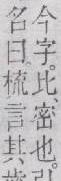 今字。比、密也。引
名曰。梳言其